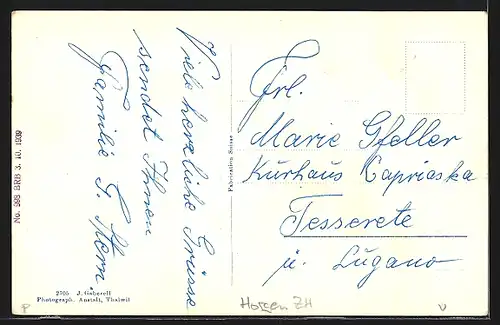 Viele herzliche Grüsse
sendet Ihnen
Familie G. Stern.
No. 595 BRB 3. 10. 1939
2705 J. Gaberell
Photograph. Anstalt, Thalwil
Fabrication Suisse
Frl.
Marie Gfeller
Kurhaus Capriaska
Tesserete
ü. Lugano
Horgen ZH
P
V